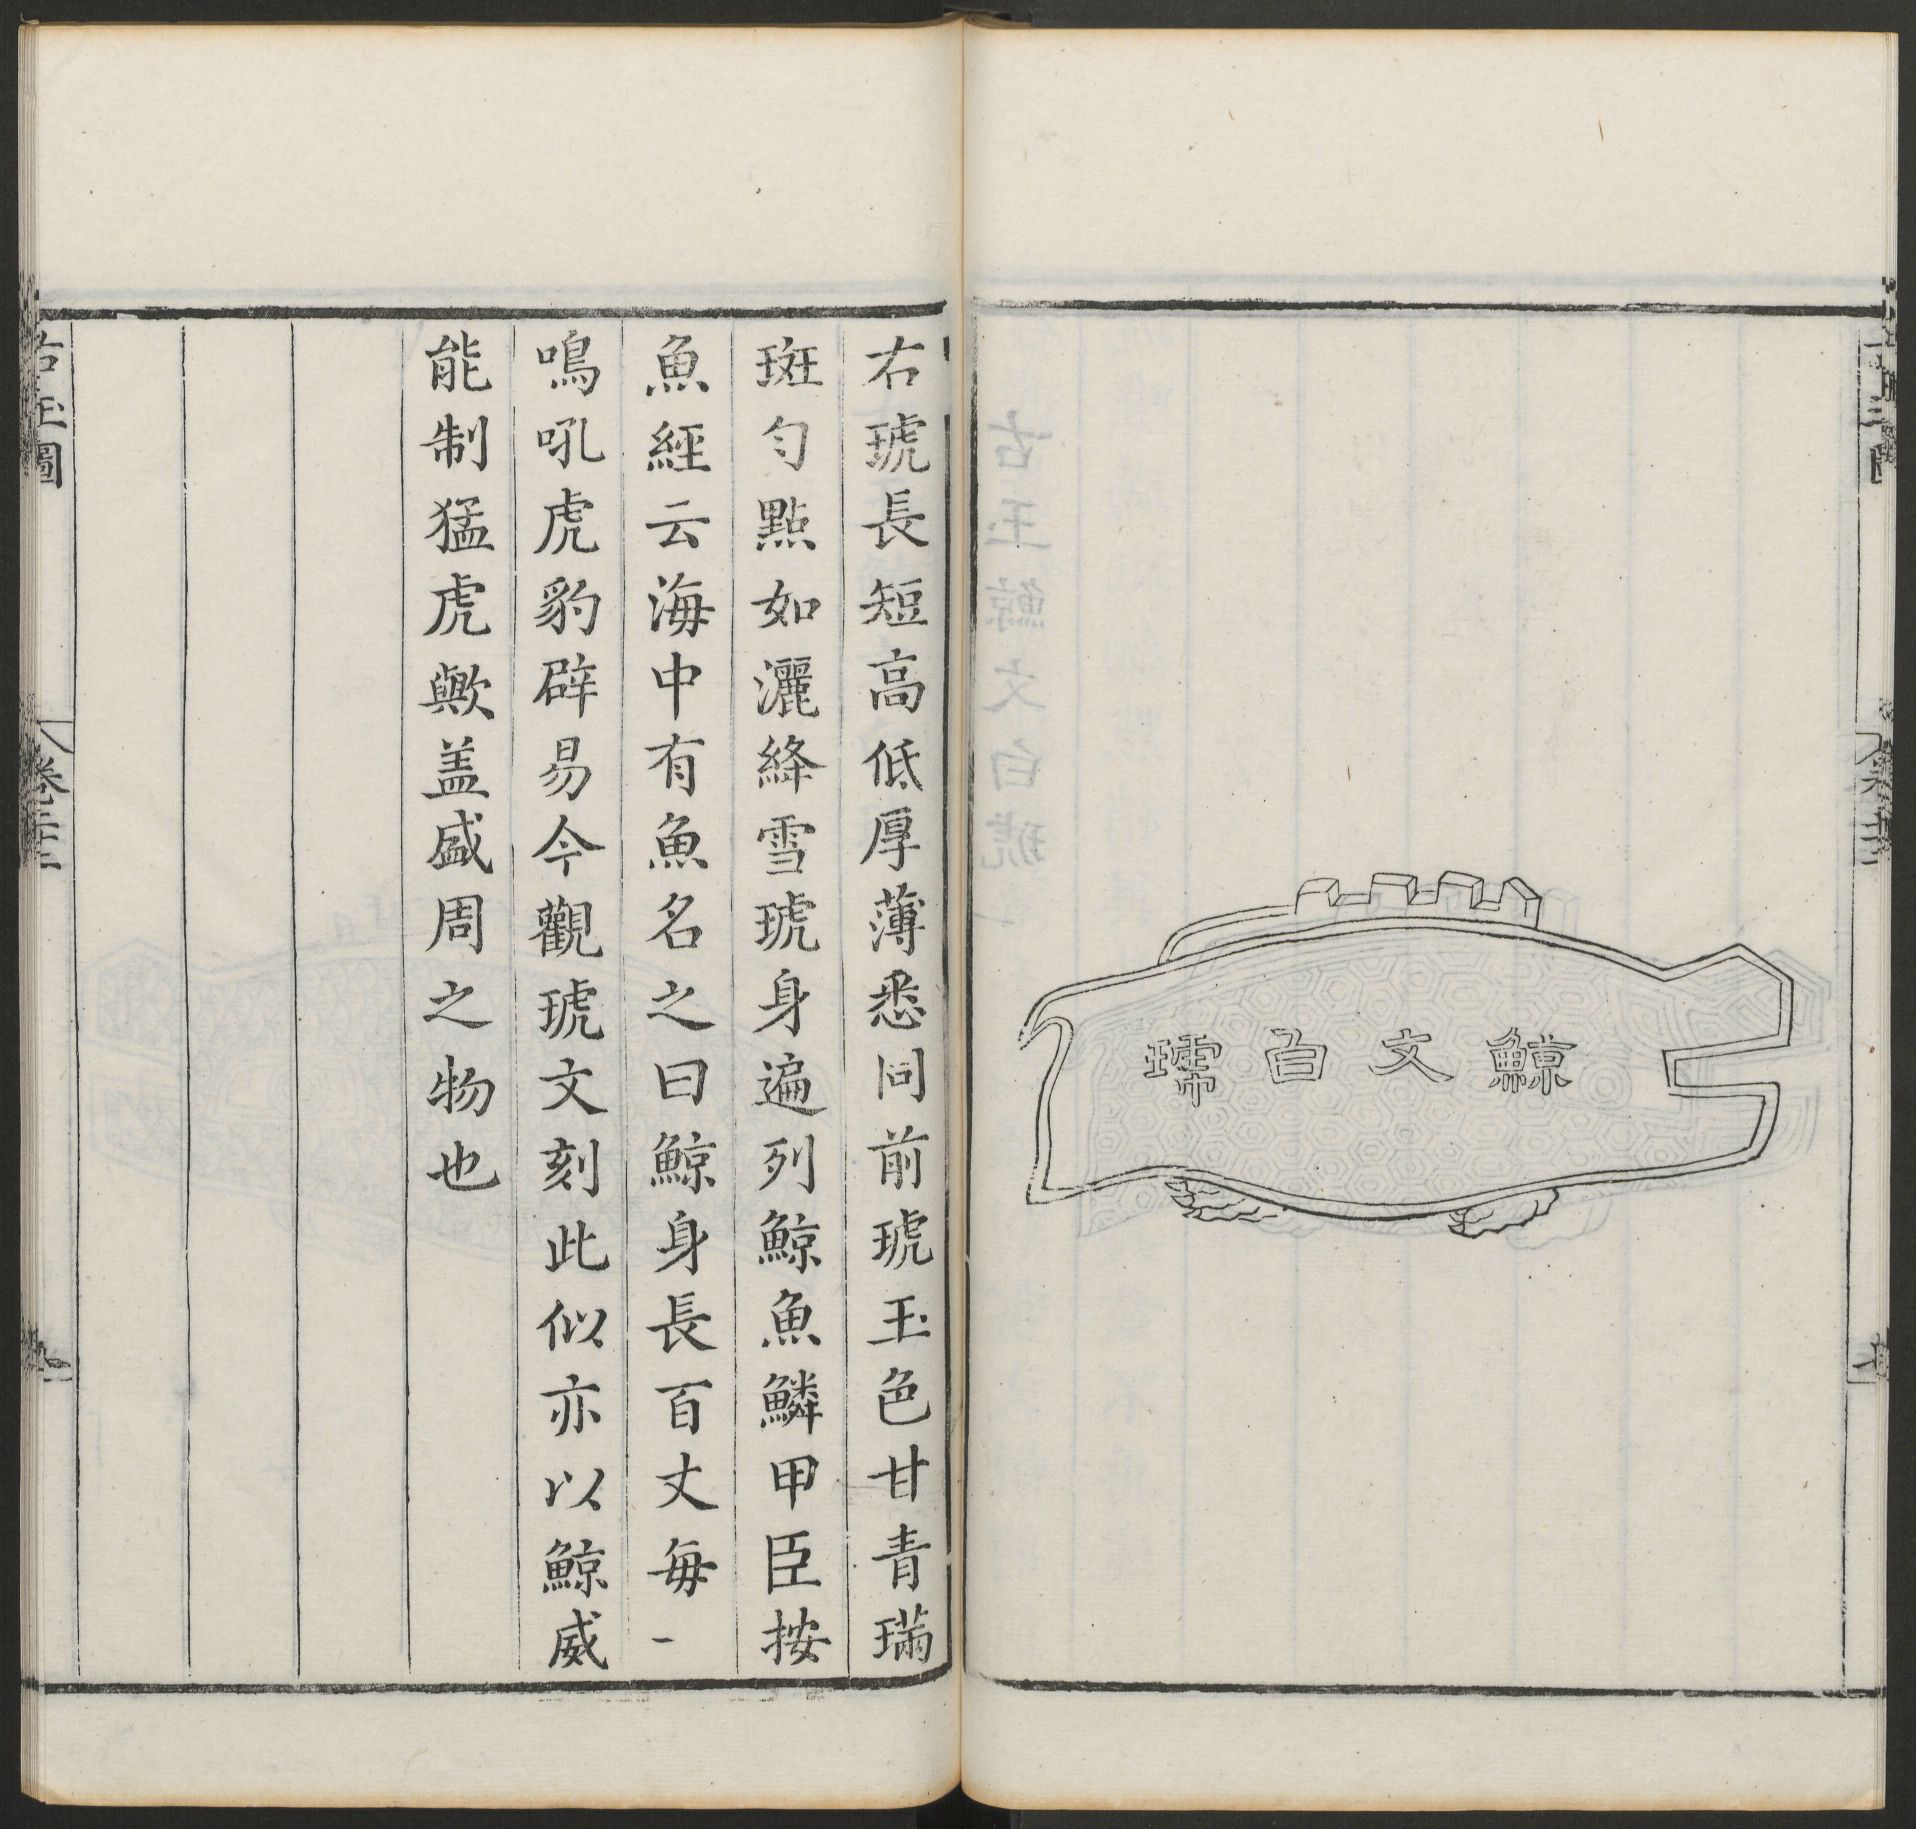 鯨文白琥
右琥長短高低厚薄悉同前琥玉色甘青璊
斑勻點如灑絳雪琥身遍列鯨魚鱗甲臣按
魚經云海中有魚名之曰鯨身長百丈每一
鳴吼虎豹辟易今觀琥文刻此似亦以鯨威
能制猛虎歟盖盛周之物也
古玉圖